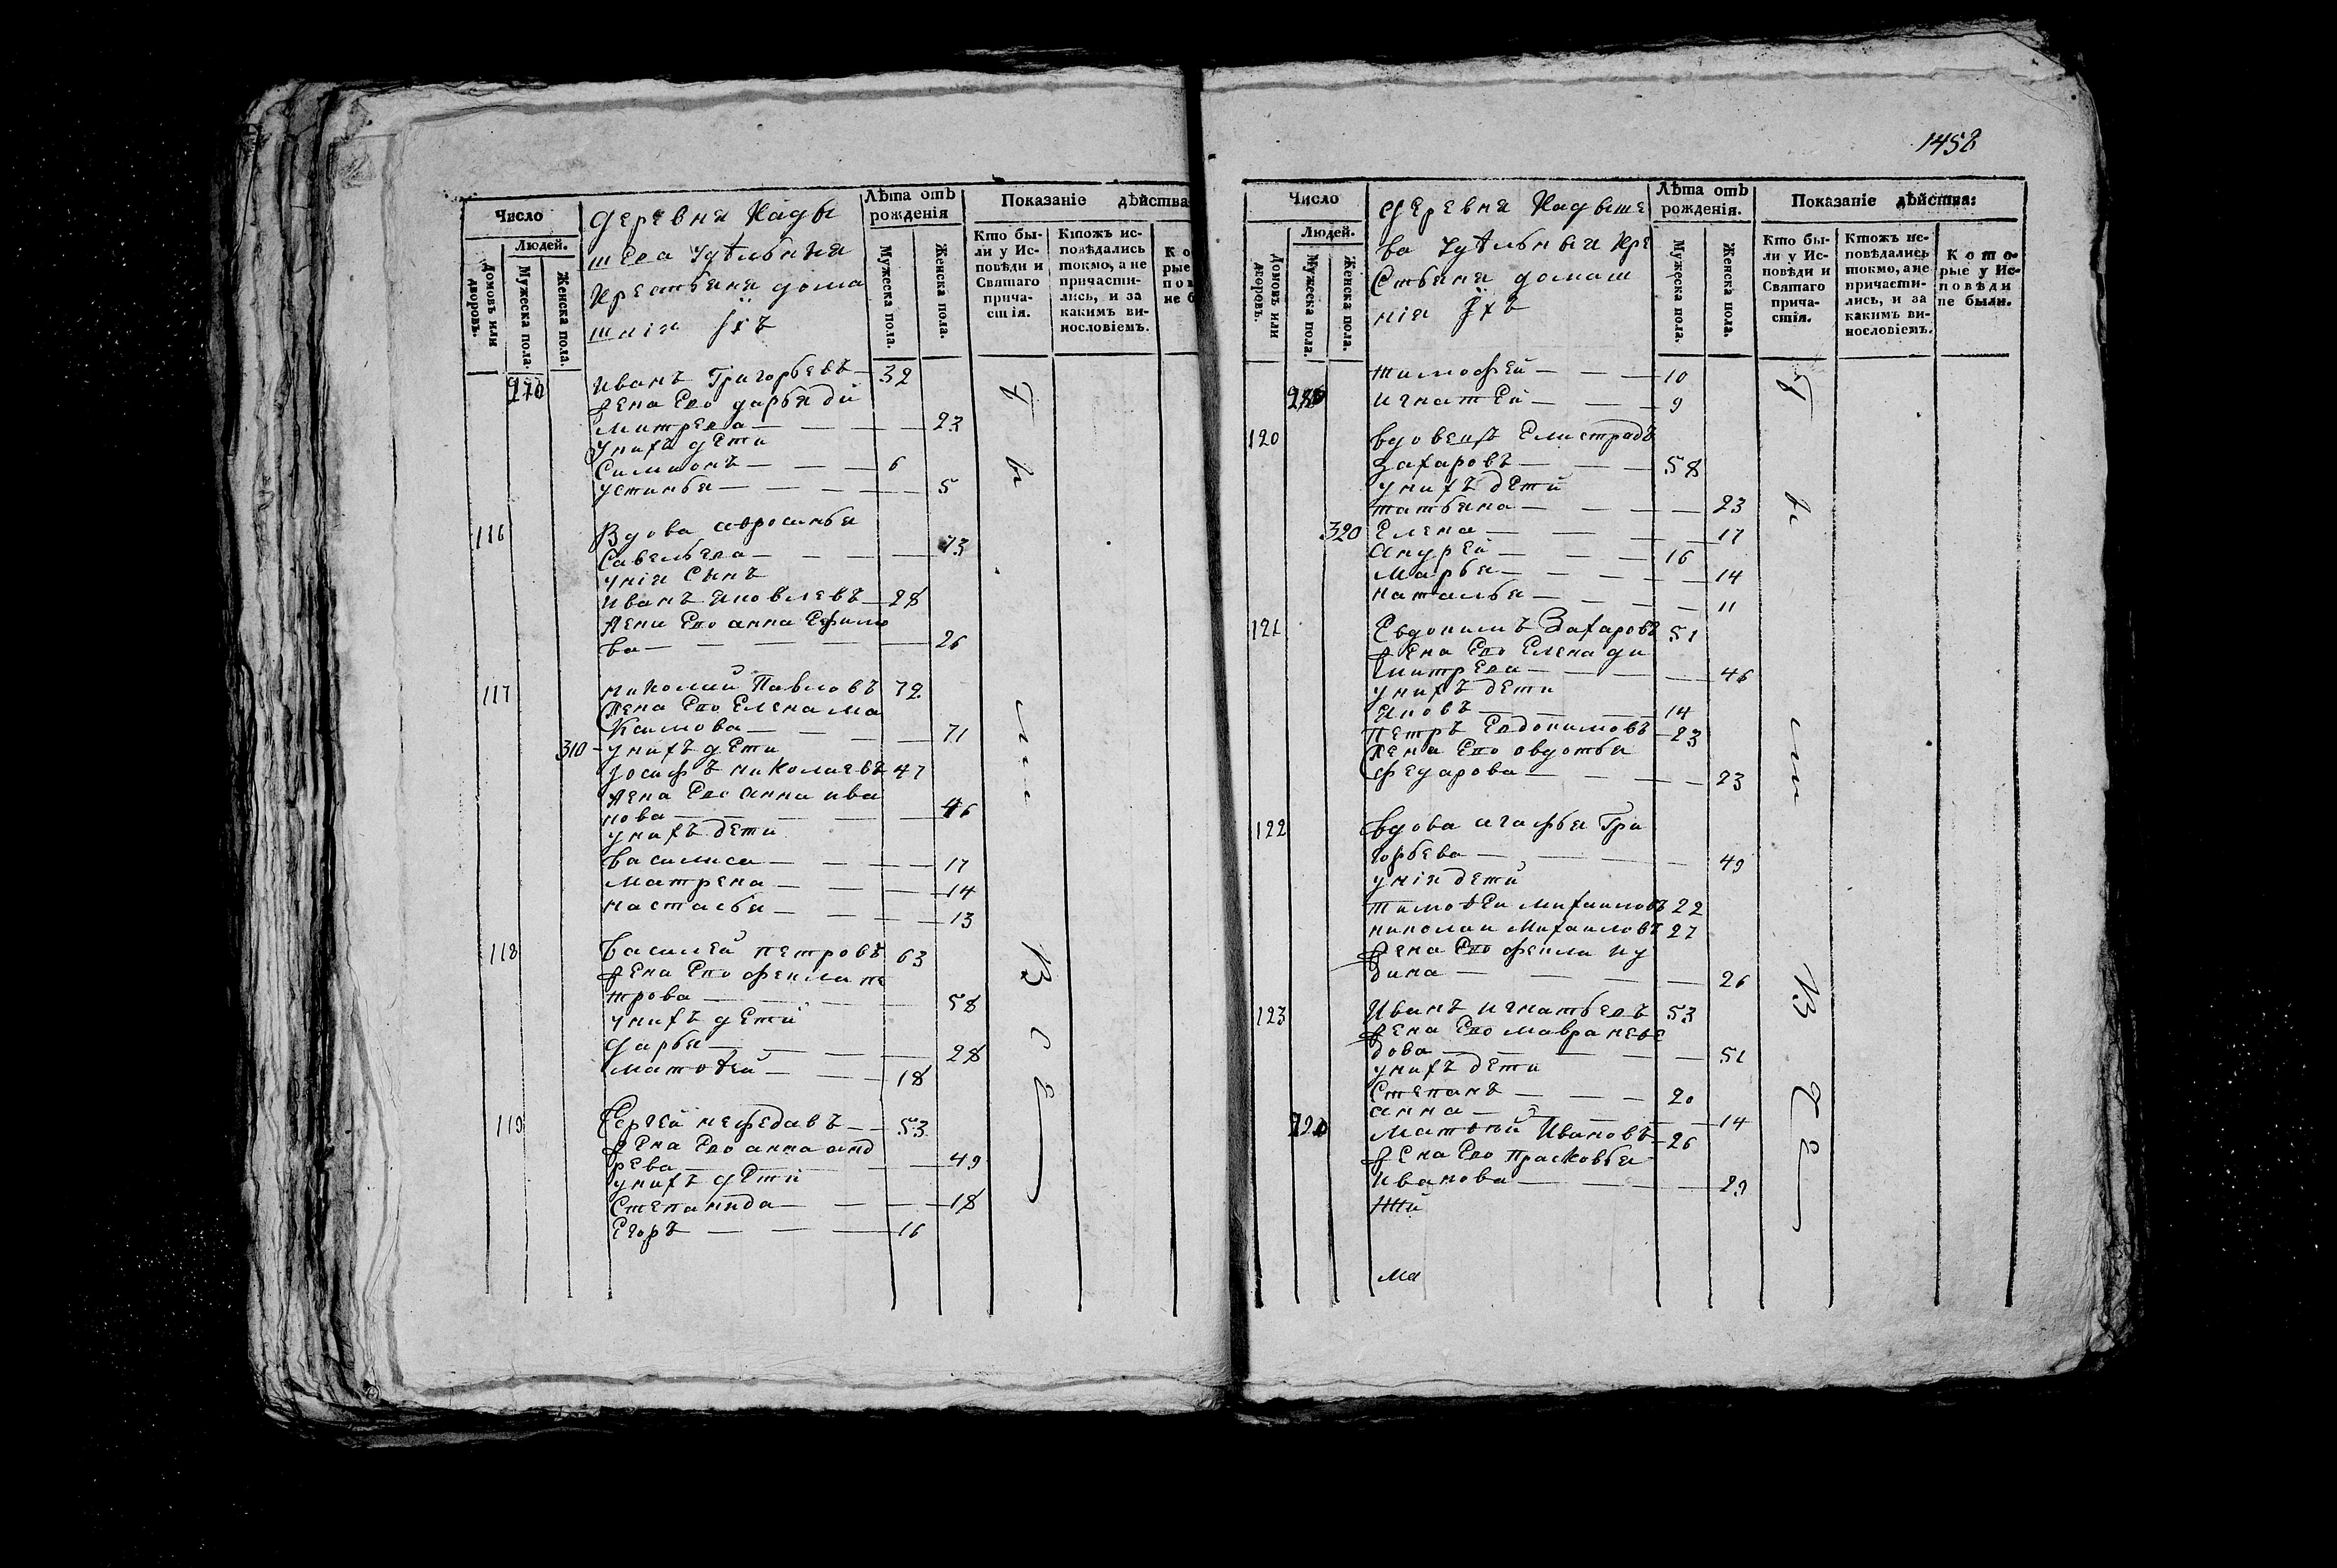 Число
Людей.
Домовъ или дворовъ.
Мужеска пола.
Женска пола.
деревня Кады
шева Удѣльныя
Крестьяня дома
шнія ихъ
Лѣта отъ
рожденія
Мужеска пола.
Женска пола.
Показаніе дѣйства
Кто бы-
ли у Ис-
повѣди и
Святаго
прича-
стія.
Ктожъ ис-
повѣдались
токмо, а не
причасти-
лись, и за
какимъ ви-
нословіемъ.
Ко
рые
пов
не б
Иванъ Григорьевъ — 32
270
жена Его дарья ди
митрева — — — 23
унихъ дети
Симионъ — — — 6
устинья — — — 5
116 Вдова авросинья
Савельева — — — 73
унія Сынъ
Иванъ Яковлевъ — 28
жена Его анна Ефимо
ва — — — 26
117 николай Павловъ 72
жена Его Елена ма
Кимова — — — 71
310 унихъ дети
Іосифъ николаевъ 47
жена Его Анна ива
нова — — — 46
унихъ дети
Василиса — — — 17
Матрена — — — 14
настасья — — — 13
118 Василей петровъ 63
жена Его фекла пе
трова — — — 58
унихъ дети
дарья — — — 28
Матѳей — — — 18
119 Сергей нефедавъ — 53
жена Его анна анд
рева — — — 49
унихъ дети
Степанида — — — 18
Егоръ — — — 16
1458
Число
Людей.
Домовъ или дворовъ.
Мужеска пола.
Женска пола.
деревня Кадыше
ва Удѣльныя Кре
Стьяня домаш
нія ихъ
Лѣта отъ
рожденія.
Мужеска пола.
Женска пола.
Показаніе дѣйства:
Кто бы-
ли у Ис-
повѣди и
Святаго
прича-
стія.
Ктожъ ис-
повѣдались
токмо, а не
причасти-
лись, и за
какимъ ви-
нословіемъ.
Кото-
рые у Ис-
повѣди
не были.
тимофей — — — 10
игнатей — — — 9
120 вдовецъ Елистратъ
Захаровъ — — — 58
унихъ дети
татьяна — — — 23
320 Елена — — — 17
андрей — — — 16
Марья — — — 14
наталья — — — 11
121 Евдокимъ Захаровъ 51
жена Его Елена ди
митрева — — — 46
унихъ дети
Яковъ — — — 14
Петръ Евдокимовъ — 23
жена Его овдотья
федарова — — — 23
122 вдова агафья Гри
горьева — — — 49
унія дети
тимоѳеи михаиловъ 22
николаи Михаиловъ 27
жена Его фекла ку
дина — — — 26
123 Иванъ игнатьевъ 53
жена Его мавра нефе
дова — — — 51
унихъ дети
Степанъ — — — 20
анна — — — 14
Матѳей Ивановъ — 26
жена Его прасковья
Иванова — — — 29
Ма